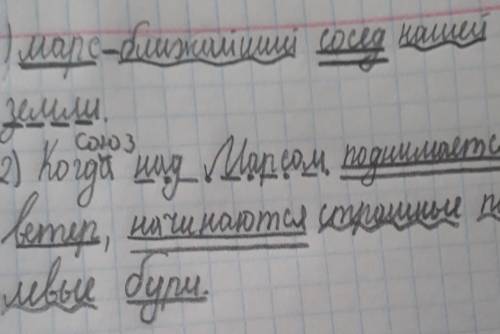 ) марс - ближайший сосед нашей
земли.
союз
2) Когда над Марсом поднимаетс
ветер, начинаются страшные п
левые бури.